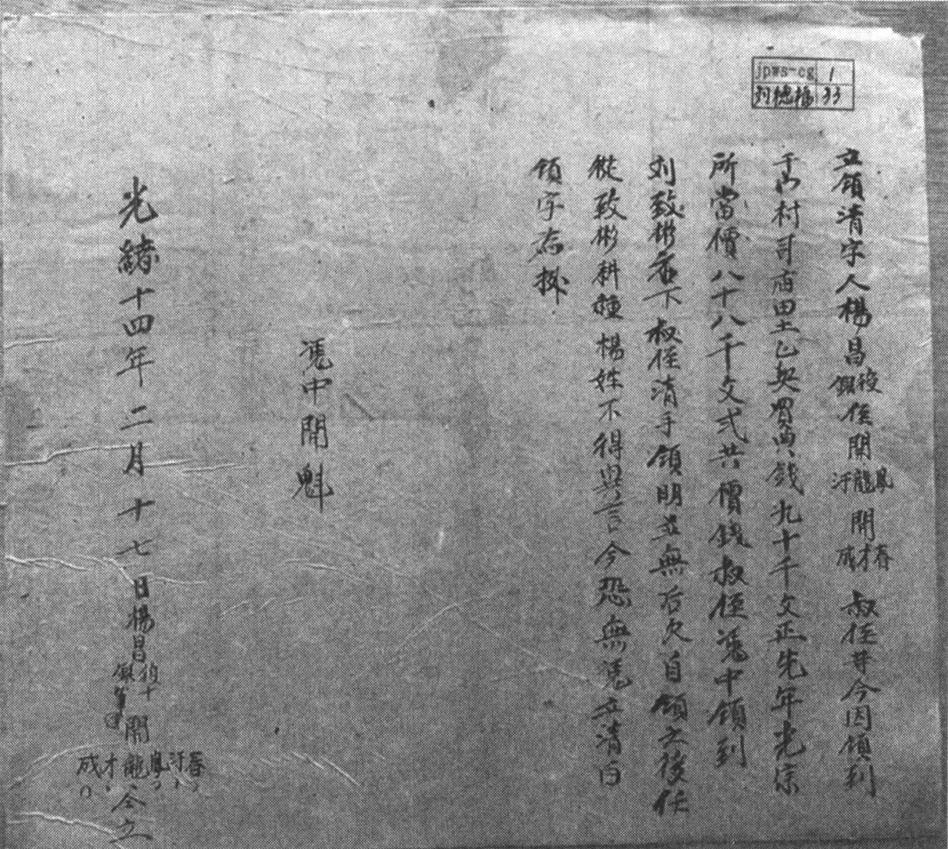 jpws-cg 1
刘德

立領清字人楊昌 銀 侄開 鳳龍汙 開 春才成 叔侄等今因領到
村司庙田土乙契買 錢九十千文正先年光宗
所當價八十八千文式共價錢叔侄憑中領到
刘致彬名下叔侄清手領明並無后欠自領之後任
從致彬耕種楊姓不得異言今恐無憑立清白
領字為據
憑中開魁
光緒十四年二月十七日楊昌 銀 開 春汙鳳龍才成 仝立